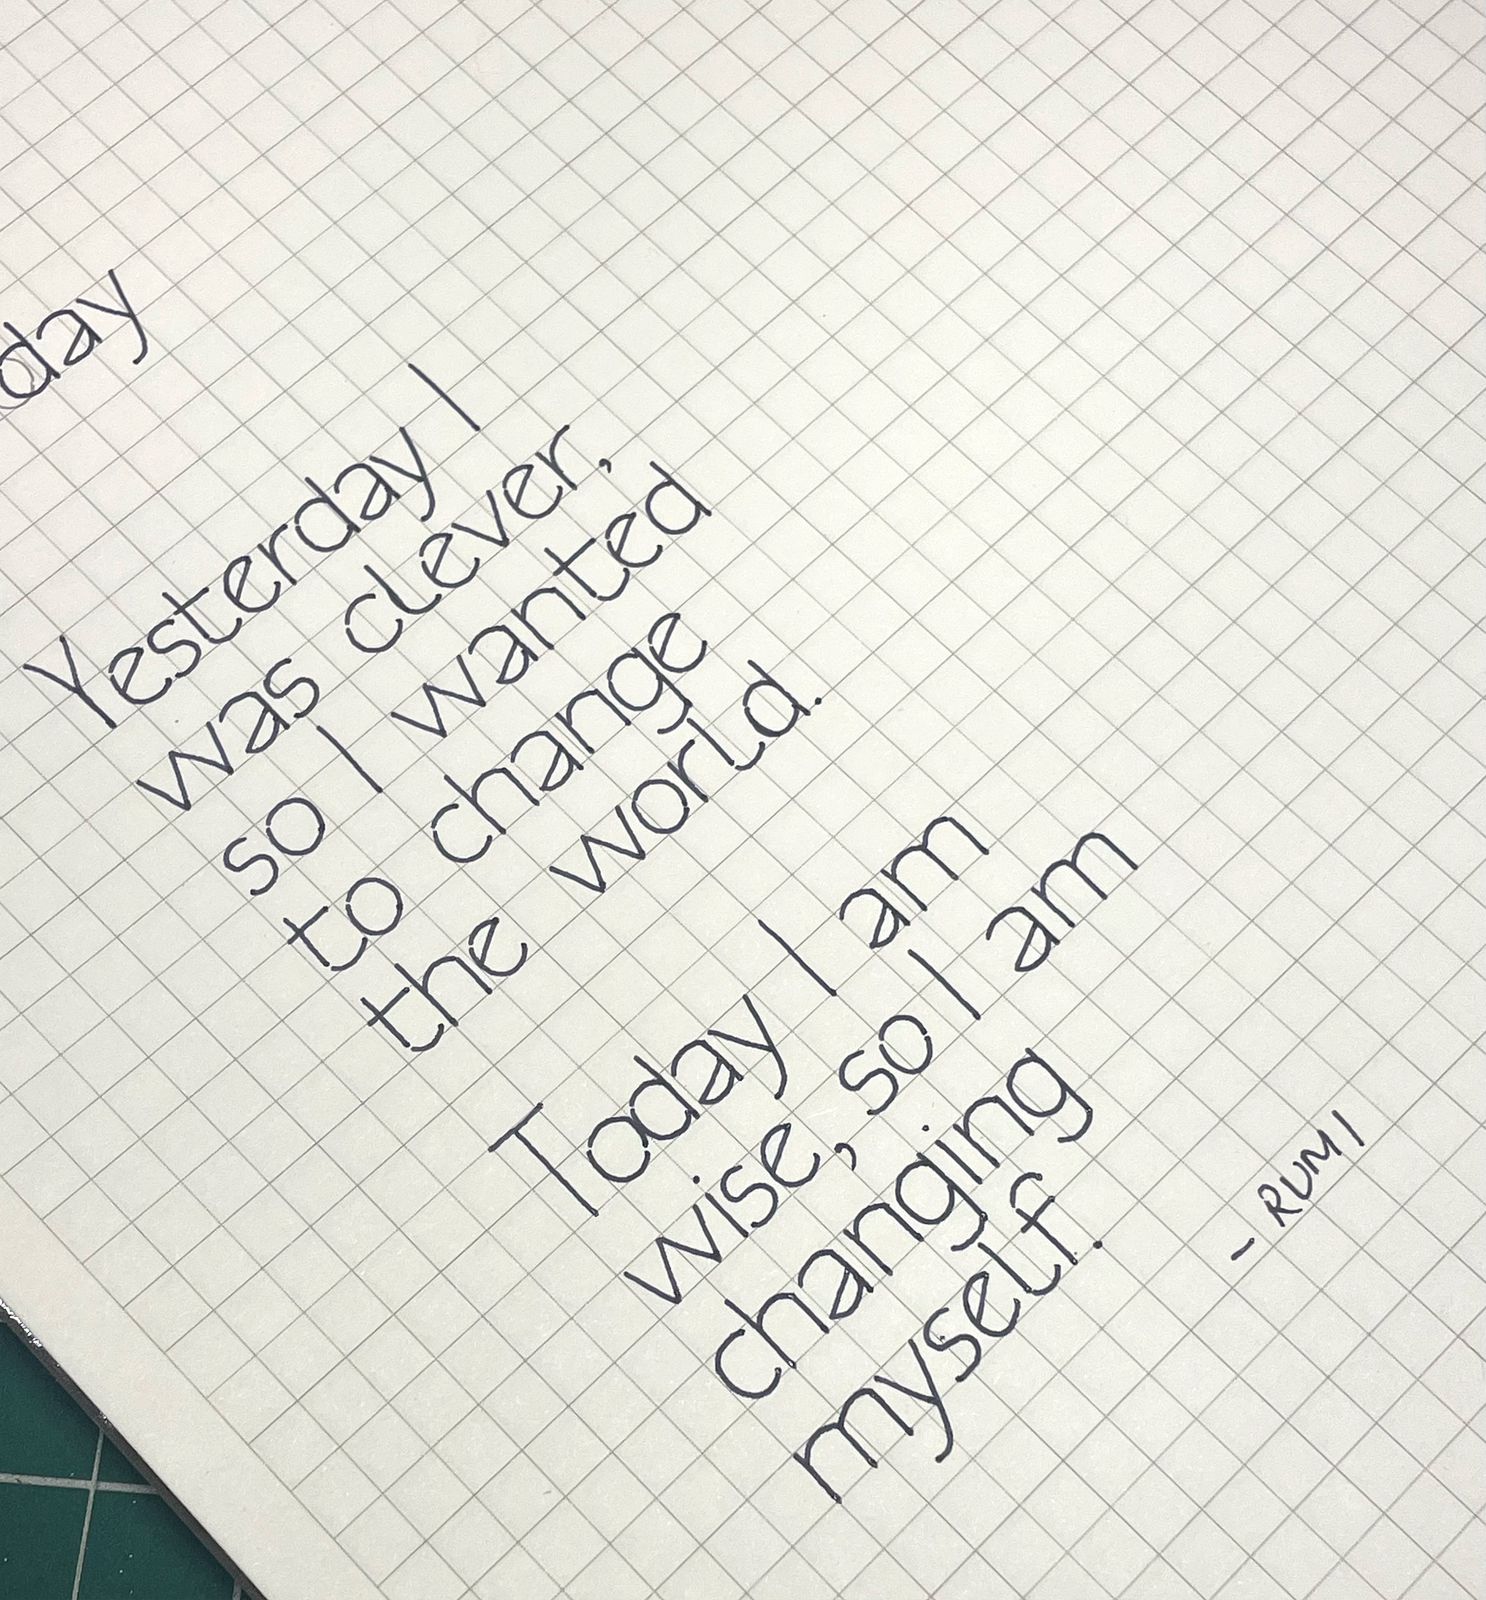 day
Yesterday I
was clever,
so I wanted
to change
the world.
Today I am
wise, so I am
changing
myself.
- RUMI